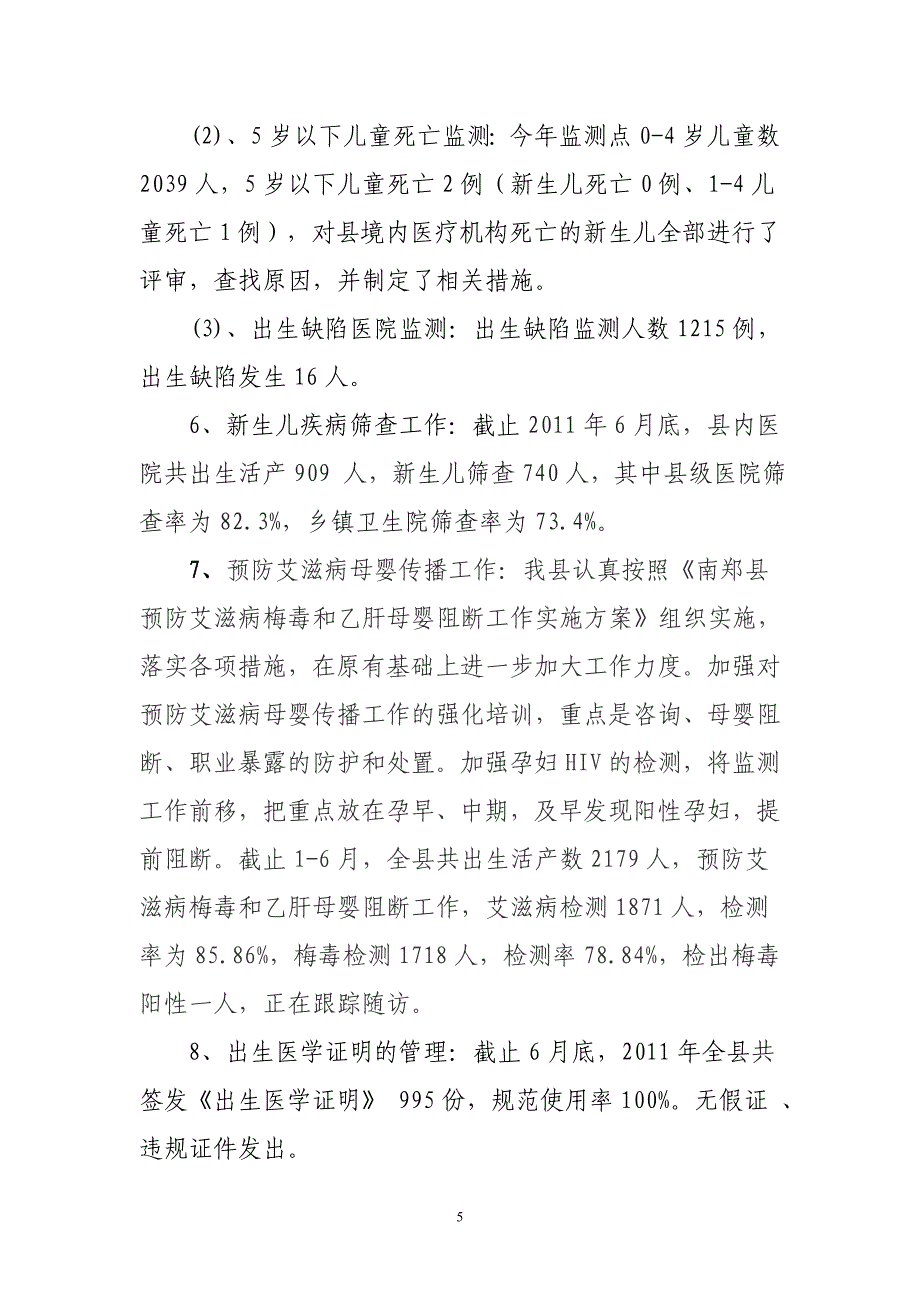 (2)、5 岁以下儿童死亡监测：今年监测点 0-4 岁儿童数
2039 人，5 岁以下儿童死亡 2 例（新生儿死亡 0 例、1-4 儿
童死亡 1 例），对县境内医疗机构死亡的新生儿全部进行了
评审，查找原因，并制定了相关措施。
(3)、出生缺陷医院监测：出生缺陷监测人数 1215 例，
出生缺陷发生 16 人。
6、新生儿疾病筛查工作：截止 2011 年 6 月底，县内医
院共出生活产 909 人，新生儿筛查 740 人，其中县级医院筛
查率为 82.3%，乡镇卫生院筛查率为 73.4%。
7、预防艾滋病母婴传播工作：我县认真按照《南郑县
预防艾滋病梅毒和乙肝母婴阻断工作实施方案》组织实施，
落实各项措施，在原有基础上进一步加大工作力度。加强对
预防艾滋病母婴传播工作的强化培训，重点是咨询、母婴阻
断、职业暴露的防护和处置。加强孕妇 HIV 的检测，将监测
工作前移，把重点放在孕早、中期，及早发现阳性孕妇，提
前阻断。截止 1-6 月，全县共出生活产数 2179 人，预防艾
滋病梅毒和乙肝母婴阻断工作，艾滋病检测 1871 人，检测
率为 85.86%，梅毒检测 1718 人，检测率 78.84%，检出梅毒
阳性一人，正在跟踪随访。
8、出生医学证明的管理：截止 6 月底，2011 年全县共
签发《出生医学证明》 995 份，规范使用率 100%。无假证 、
违规证件发出。
5